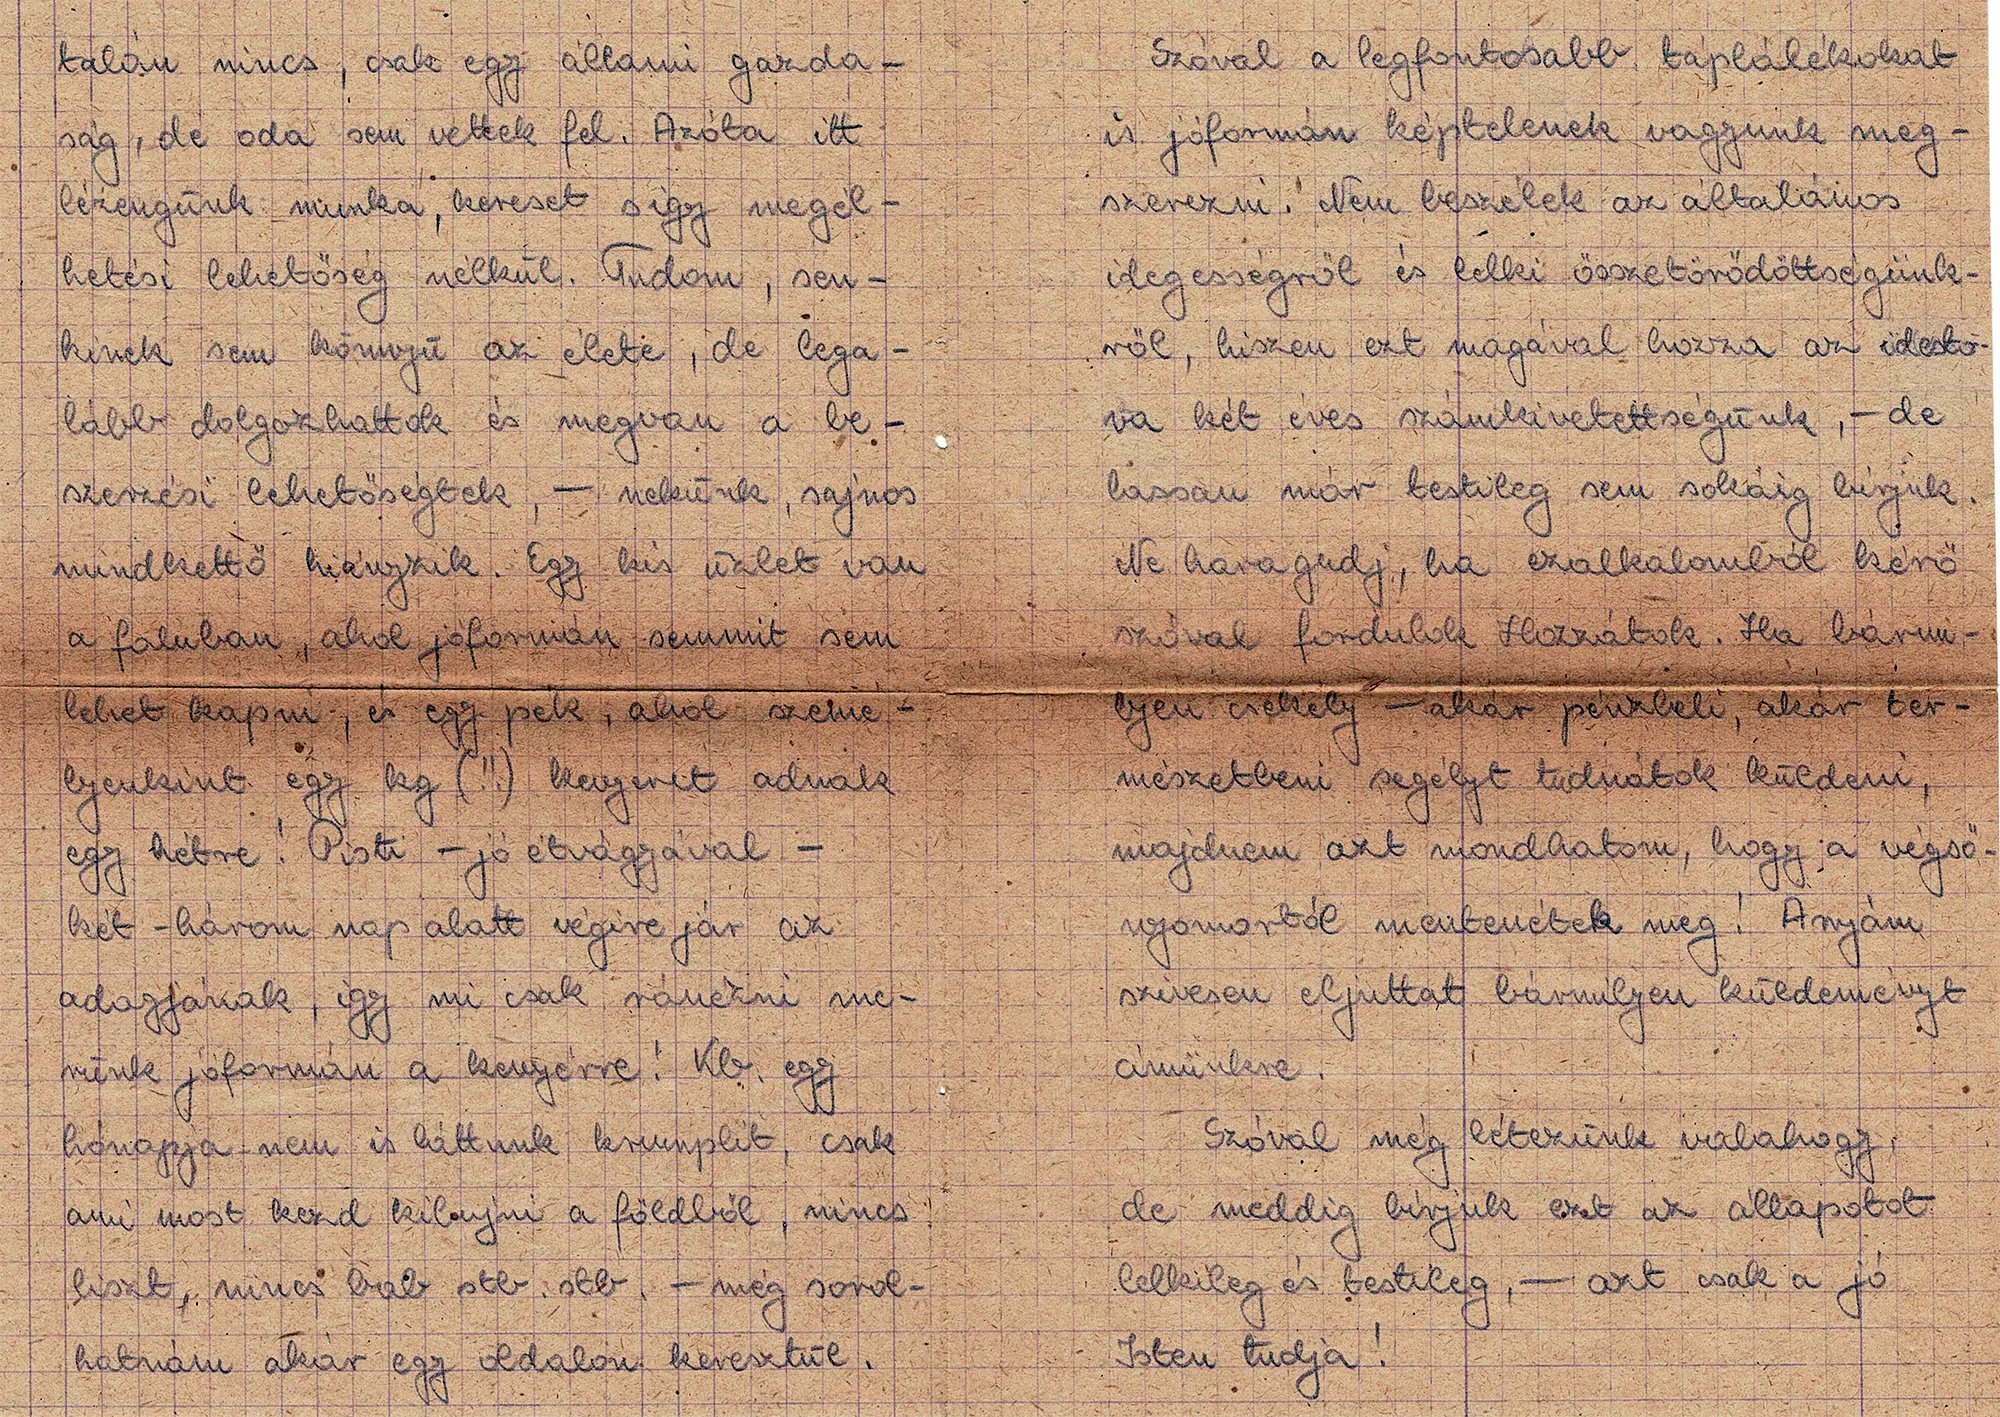 talán nincs, csak egy állami gazda-
ság, de oda sem vettek fel. Azóta itt
lézengünk munka, kereset s így megél-
hetési lehetőség nélkül. Tudom, sen-
kinek sem könnyü az élete, de lega-
lább dolgozhattok és megvan a be-
szerzési lehetőségtek, — nekünk, sajnos
mindkettő hiányzik. Egy kis üzlet van
a faluban, ahol jóformán semmit sem
lehet kapni, és egy pék, ahol szemé-
lyenkint egy kg (!!) kenyeret adnak
egy hétre! Pisti - jó étvágyával -
két-három nap alatt végire jár az
adagjának, így mi csak ránézni me-
rünk jóformán a kenyérre! Kb. egy
hónapja nem is láttunk krumplit, csak
ami most kezd kibujni a földből, nincs
liszt, nincs bab stb. stb. - még sorol-
hatnám akár egy oldalon keresztül.
Szóval a legfontosabb táplálékokat
is jóformán képtelenek vagyunk meg-
szerezni! Nem beszélek az általános
idegességről és lelki összetörődöttségünk-
ről, hiszen ezt magával hozza az idestó-
va két éves számkivetettségünk, - de
lassan már testileg sem sokáig bírjuk.
Ne haragudj, ha ezalkalomból kérő
szóval fordulok Hozzátok. Ha bármi-
lyen csekély - akár pénzbeli, akár ter-
mészetbeni segélyt tudnátok küldeni,
majdnem azt mondhatom, hogy a végső-
nyomortól mentenétek meg! Anyám
szivesen eljuttat bármilyen küldeményt
címünkre.
Szóval még létezünk valahogy,
de meddig bírjuk ezt az állapotot
lelkileg és testileg, — azt csak a jó
Isten tudja!